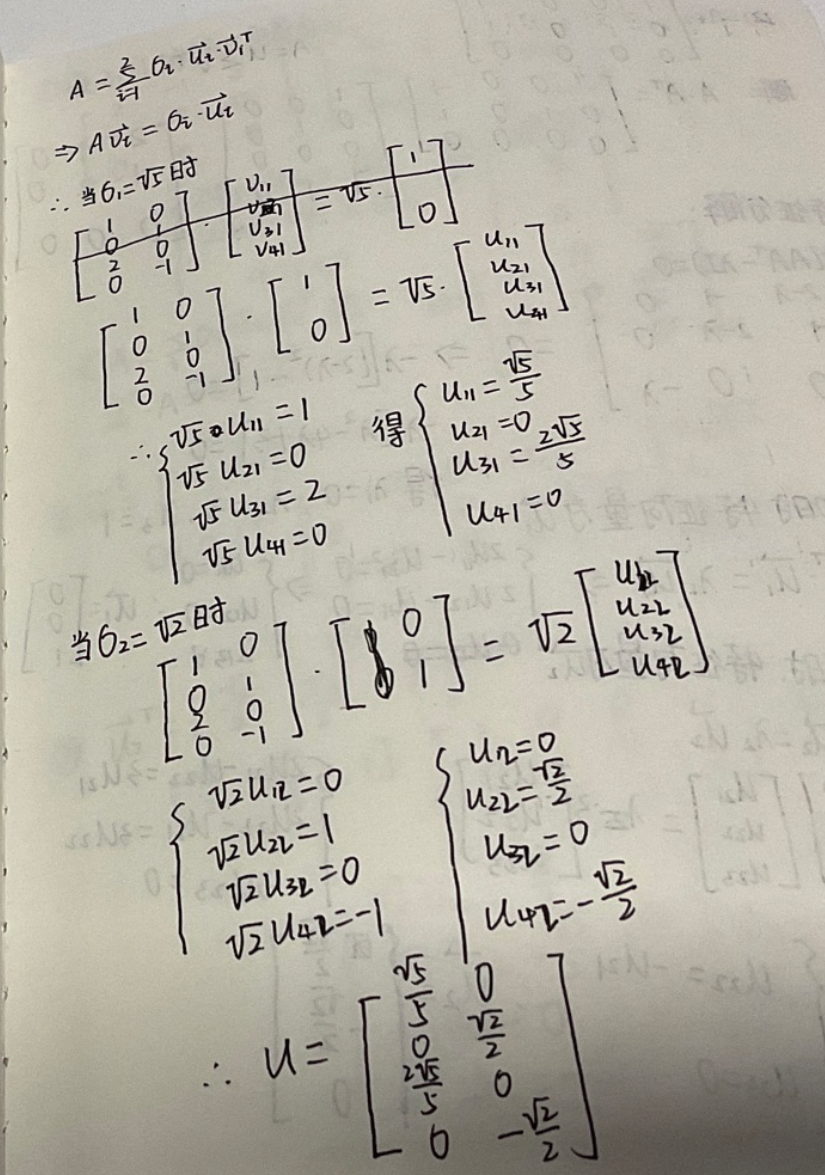 A = Σ_{i=1}^{2} σ_i · u⃗_i · v⃗_i^T
⇒ A v⃗_i = σ_i · u⃗_i
∴ 当 σ_1 = √5 时
[1 0; 0 1; 2 0; 0 -1] · [v_11; v_21; v_31; v_41] = √5 · [1; 0]
[1 0; 0 1; 2 0; 0 -1] · [1; 0] = √5 · [u_11; u_21; u_31; u_41]
∴ { √5 · u_11 = 1
√5 u_21 = 0
√5 u_31 = 2
√5 u_41 = 0
得 { u_11 = √5/5
u_21 = 0
u_31 = 2√5/5
u_41 = 0
当 σ_2 = √2 时
[1 0; 0 1; 2 0; 0 -1] · [0; 1] = √2 [u_12; u_22; u_32; u_42]
{ √2 u_12 = 0
√2 u_22 = 1
√2 u_32 = 0
√2 u_42 = -1
{ u_12 = 0
u_22 = √2/2
u_32 = 0
u_42 = -√2/2
∴ u = [√5/5 0; 0 √2/2; 2√5/5 0; 0 -√2/2]